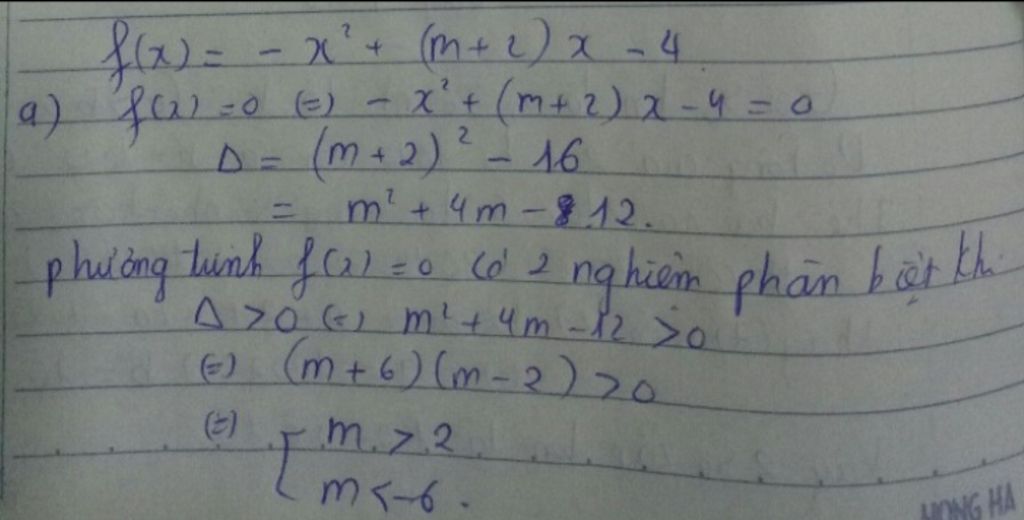 f(x) = - x² + (m + 2) x - 4
a) f(x) = 0 (=) - x² + (m + 2) x - 4 = 0
Δ = (m + 2)² - 16
= m² + 4m - 12.
phương trình f(x) = 0 có 2 nghiệm phân biệt kh
Δ > 0 (=) m² + 4m - 12 > 0
(=) (m + 6)(m - 2) > 0
(=) [ m > 2
m < -6.
HONG HA